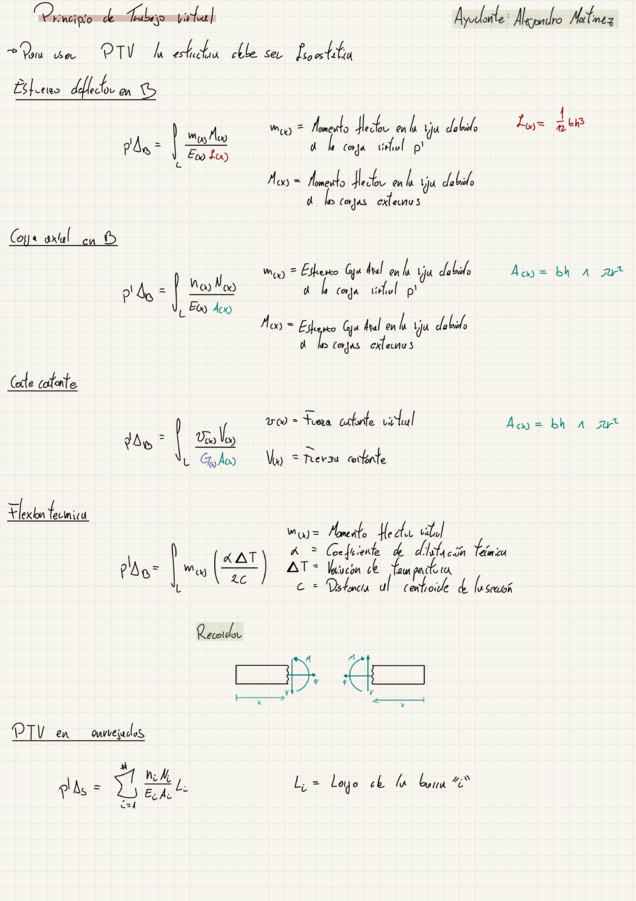 Principio de Trabajo virtual
Ayudante: Alejandro Martinez
→ Para usar PTV la estructura debe ser Isostática
Esfuerzo deflector en B
p'Δ_B = ∫_L m(x) M(x) / E(x) I(x)
m(x) = Momento flector en la viju debido
a la carga virtual p'
I(x) = 1/12 bh³
M(x) = Momento flector en la viju debido
a las cargas externas
Carga axial en B
p'Δ_B = ∫_L n(x) N(x) / E(x) A(x)
m(x) = Esfuerzo Carga Axial en la viju debido
a la carga virtual p'
A(x) = bh ∧ πr²
M(x) = Esfuerzo Carga Axial en la viju debido
a las cargas externas
Corte cortante
p'Δ_B = ∫_L v(x) V(x) / G(x) A(x)
v(x) = Fuerza cortante virtual
A(x) = bh ∧ πr²
V(x) = Fuerza cortante
Flexion termica
p'Δ_B = ∫_L m(x) (α ΔT / 2c)
m(x) = Momento flector virtual
α = Coeficiente de dilatación térmica
ΔT = Variación de temperatura
c = Distancia al centroide de la sección
Recordar
M
N
V
x
M
N
V
x
PTV en enrrejados
p'Δ_S = Σ_{i=1}^{#} n_i N_i / E_i A_i L_i
L_i = Largo de la barra "i"